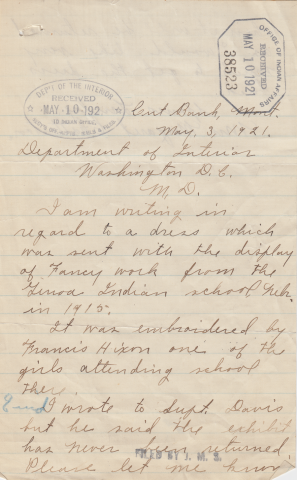 DEP'T OF THE INTERIOR
RECEIVED
MAY-10-192
OFFICE OF INDIAN AFFAIRS
RECEIVED
MAY 10 1921
38523
Cut Bank, Mont.
May, 3, 1921.
Department of Interior
Washington D. C.
M, D.
I am writing in
regard to a dress which
was sent with the display
of Fancy work from the
Genoa Indian school Nebr.
in 1915.
It was embroidered by
Francis Hixon one of the
girls attending school
there.
I wrote to Supt. Davis
but he said the exhibit
has never been returned.
FILED BY J. M. S.
Please let me know